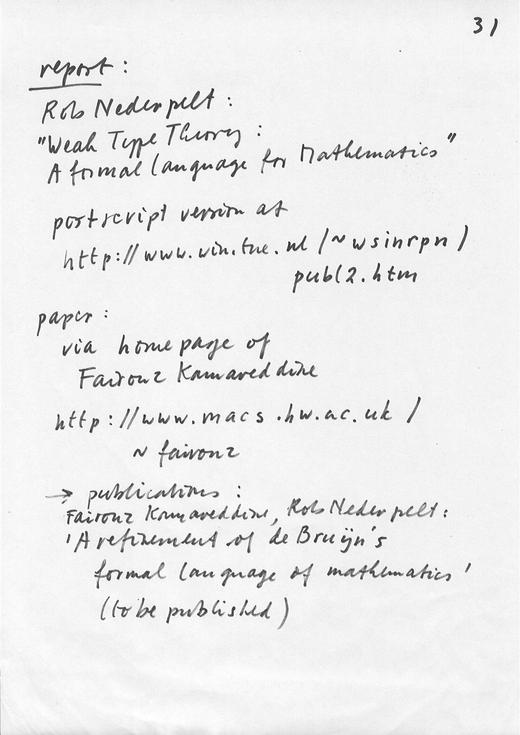 31
report :
Rob Nederpelt :
"Weak Type Theory :
A formal language for Mathematics"
postscript version at
http://www.win.tue.nl/~wsinrpn/
publ2.htm
paper :
via home page of
Fairouz Kamareddine
http://www.macs.hw.ac.uk/
~fairouz
→ publications :
Fairouz Kamareddine, Rob Nederpelt :
'A refinement of de Bruijn's
formal language of mathematics'
(to be published)